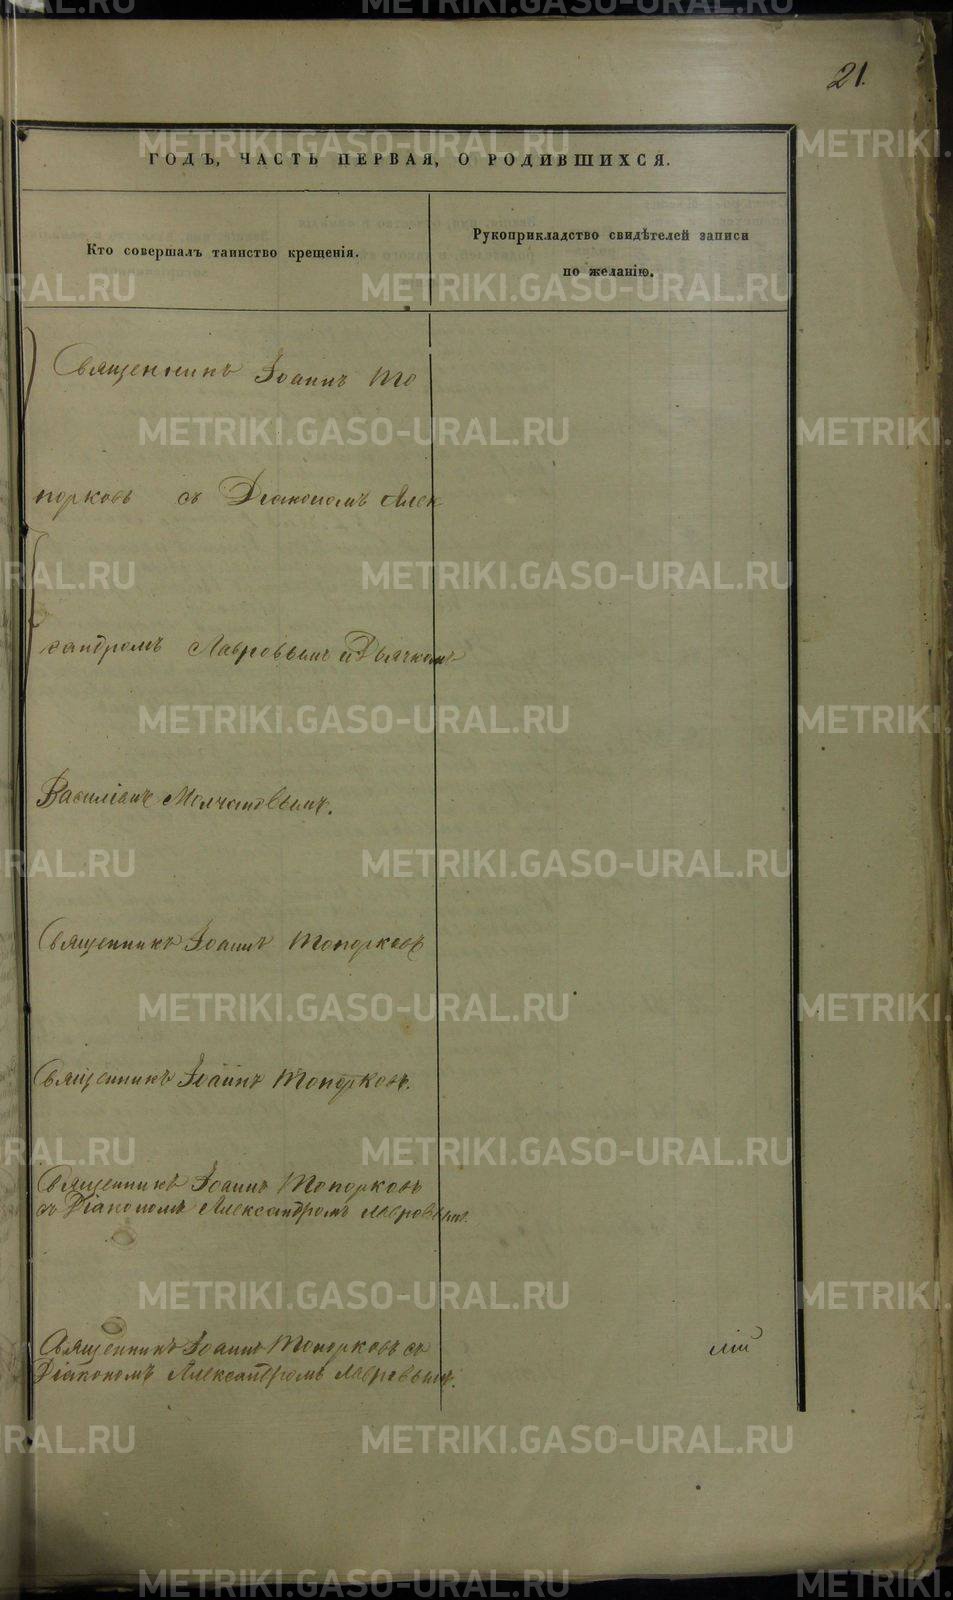 21.
ГОДЪ, ЧАСТЬ ПЕРВАЯ, О РОДИВШИХСЯ.
Кто совершалъ таинство крещенія.
Рукоприкладство свидѣтелей записи
по желанію.
Священникъ Іоаннъ То
порковъ съ Діакономъ Алек
сандромъ Лавровымъ и Дьячкомъ
Василіемъ Молчановымъ.
Священникъ Іоаннъ Топорковъ
Священникъ Іоаннъ Топорковъ.
Священникъ Іоаннъ Топорковъ
съ Діакономъ Александромъ Лавровымъ.
Священникъ Іоаннъ Топорковъ съ
Діакономъ Александромъ Лавровымъ.
METRIKI.GASO-URAL.RU